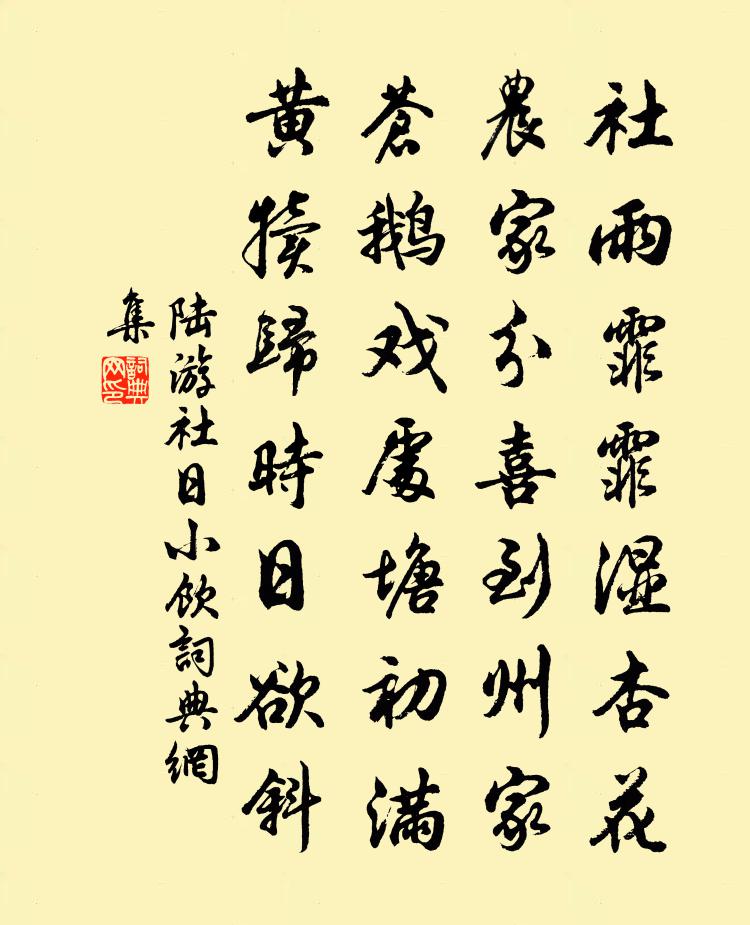 社雨霏霏濕杏花
農家分喜到州家
蒼鵝戏處塘初滿
黃犢歸時日欲斜
陆游社日小飲詞典網
集
詞典
网印